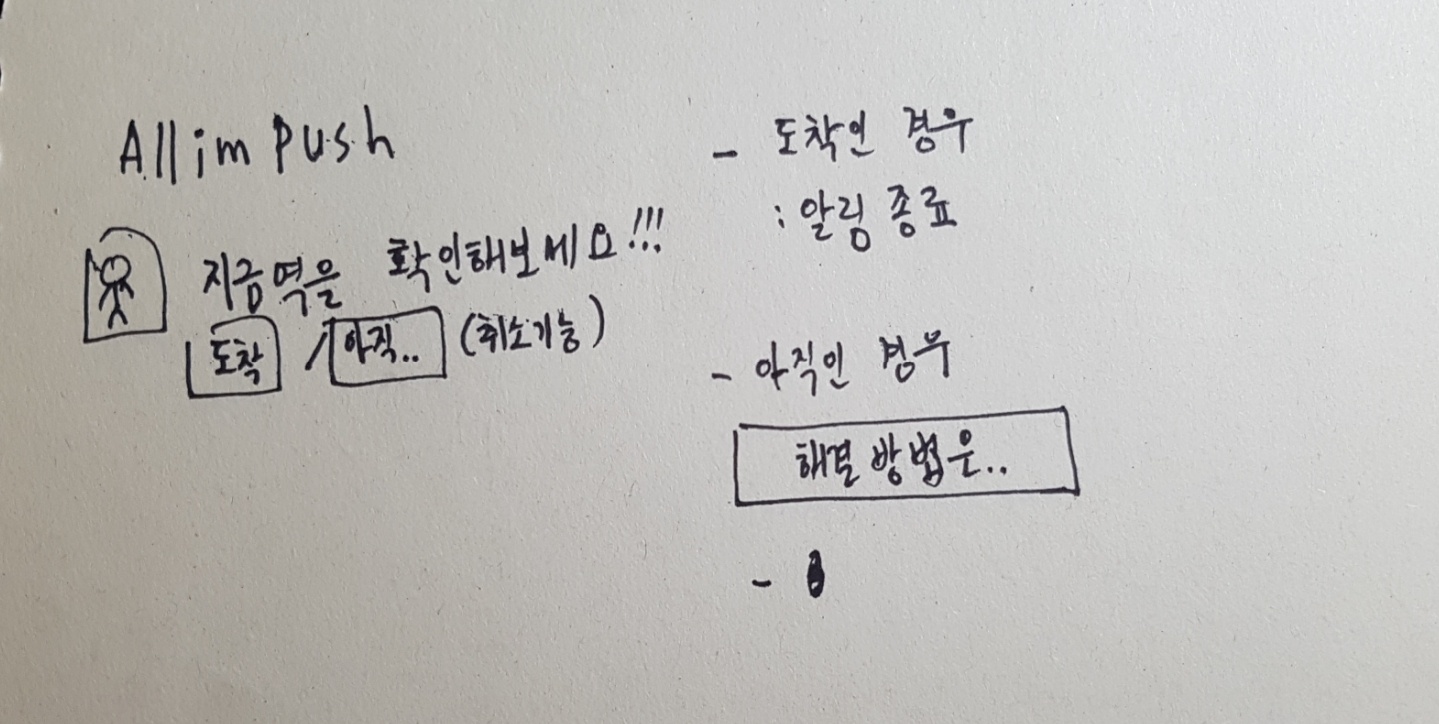 Allim Push
지금역을 확인해보세요!!!
도착 / 아직.. (취소가능)
- 도착인 경우
: 알림 종료
- 아직인 경우
해결 방법은..
-